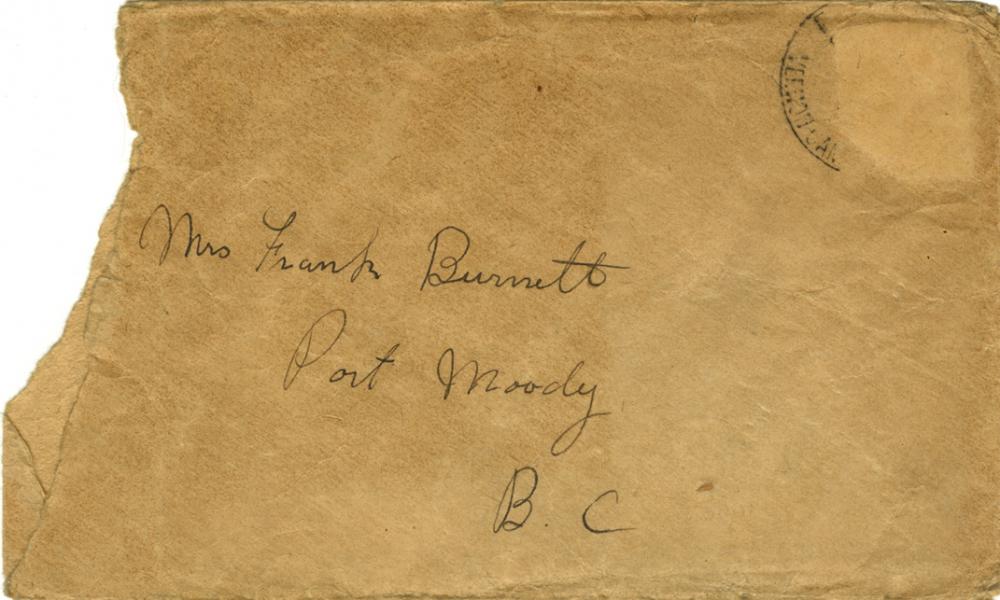 Mrs Frank Burnett
Port Moody
B. C